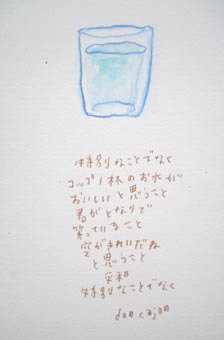 特別なことでなく
コップ1杯のお水が
おいしいと思うこと
君がとなりで
笑っていること
空がきれいだね
と思うこと
平和
特別なことでなく
don cajon